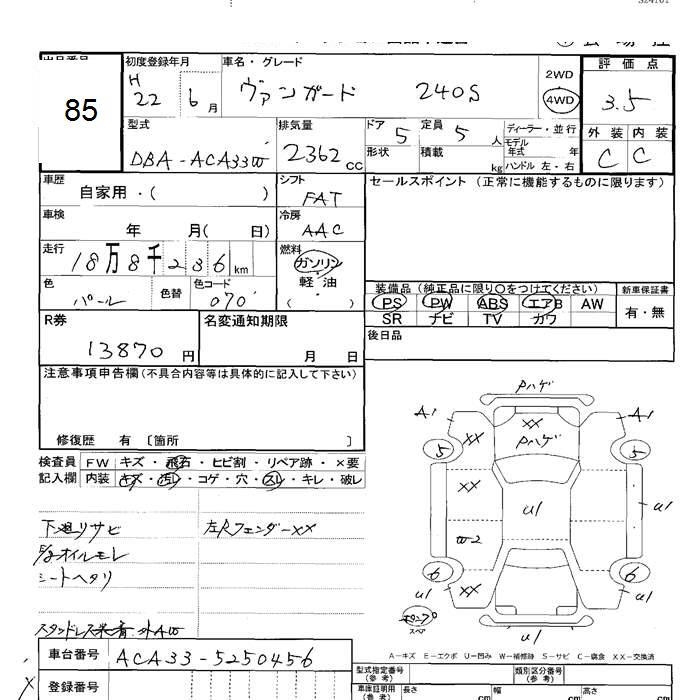 85
初度登録年月
H 22 6月
車名・グレード
ヴァンガード 240S
2WD
4WD
評価点
3.5
型式
DBA-ACA33W
排気量
2362 cc
ドア 5
形状
定員 5 人
積載 kg
ディーラー・並行
モデル年式 年
ハンドル 左・右
外装 内装
C C
車歴
自家用・( )
シフト
FAT
セールスポイント (正常に機能するものに限ります)
車検
年 月( 日)
冷房
AAC
走行
18万8千236 km
燃料
ガソリン
軽・油
( )
色
パール
色替
色コード
070
装備品 (純正品に限り○をつけてください)
新車保証書
PS PW ABS エアB AW
有・無
SR ナビ TV カワ
R券
13870 円
名変通知期限
月 日
後日品
注意事項申告欄(不具合内容等は具体的に記入して下さい)
修復歴 有 〔箇所 〕
検査員 FW キズ・飛石・ヒビ割・リペア跡・×要
記入欄 内装 キズ・汚レ・コゲ・穴・スレ・キレ・破レ
下廻リサビ
左Rフェンダー××
オイルモレ
シートヘタリ
Pハゲ
A1 ×× A1
×× Pハゲ
5 5
××
U1 U1
W-2
6 6
U1 ×× U1
スペア
U1
A-キズ E-エクボ U-凹み W-補修跡 S-サビ C-腐食 XX-交換済
車台番号
ACA33-5250456
登録番号
型式指定番号
(参考)
類別区分番号
(参考)
車庫証明用
(参考)
長さ cm
幅 cm
高さ cm